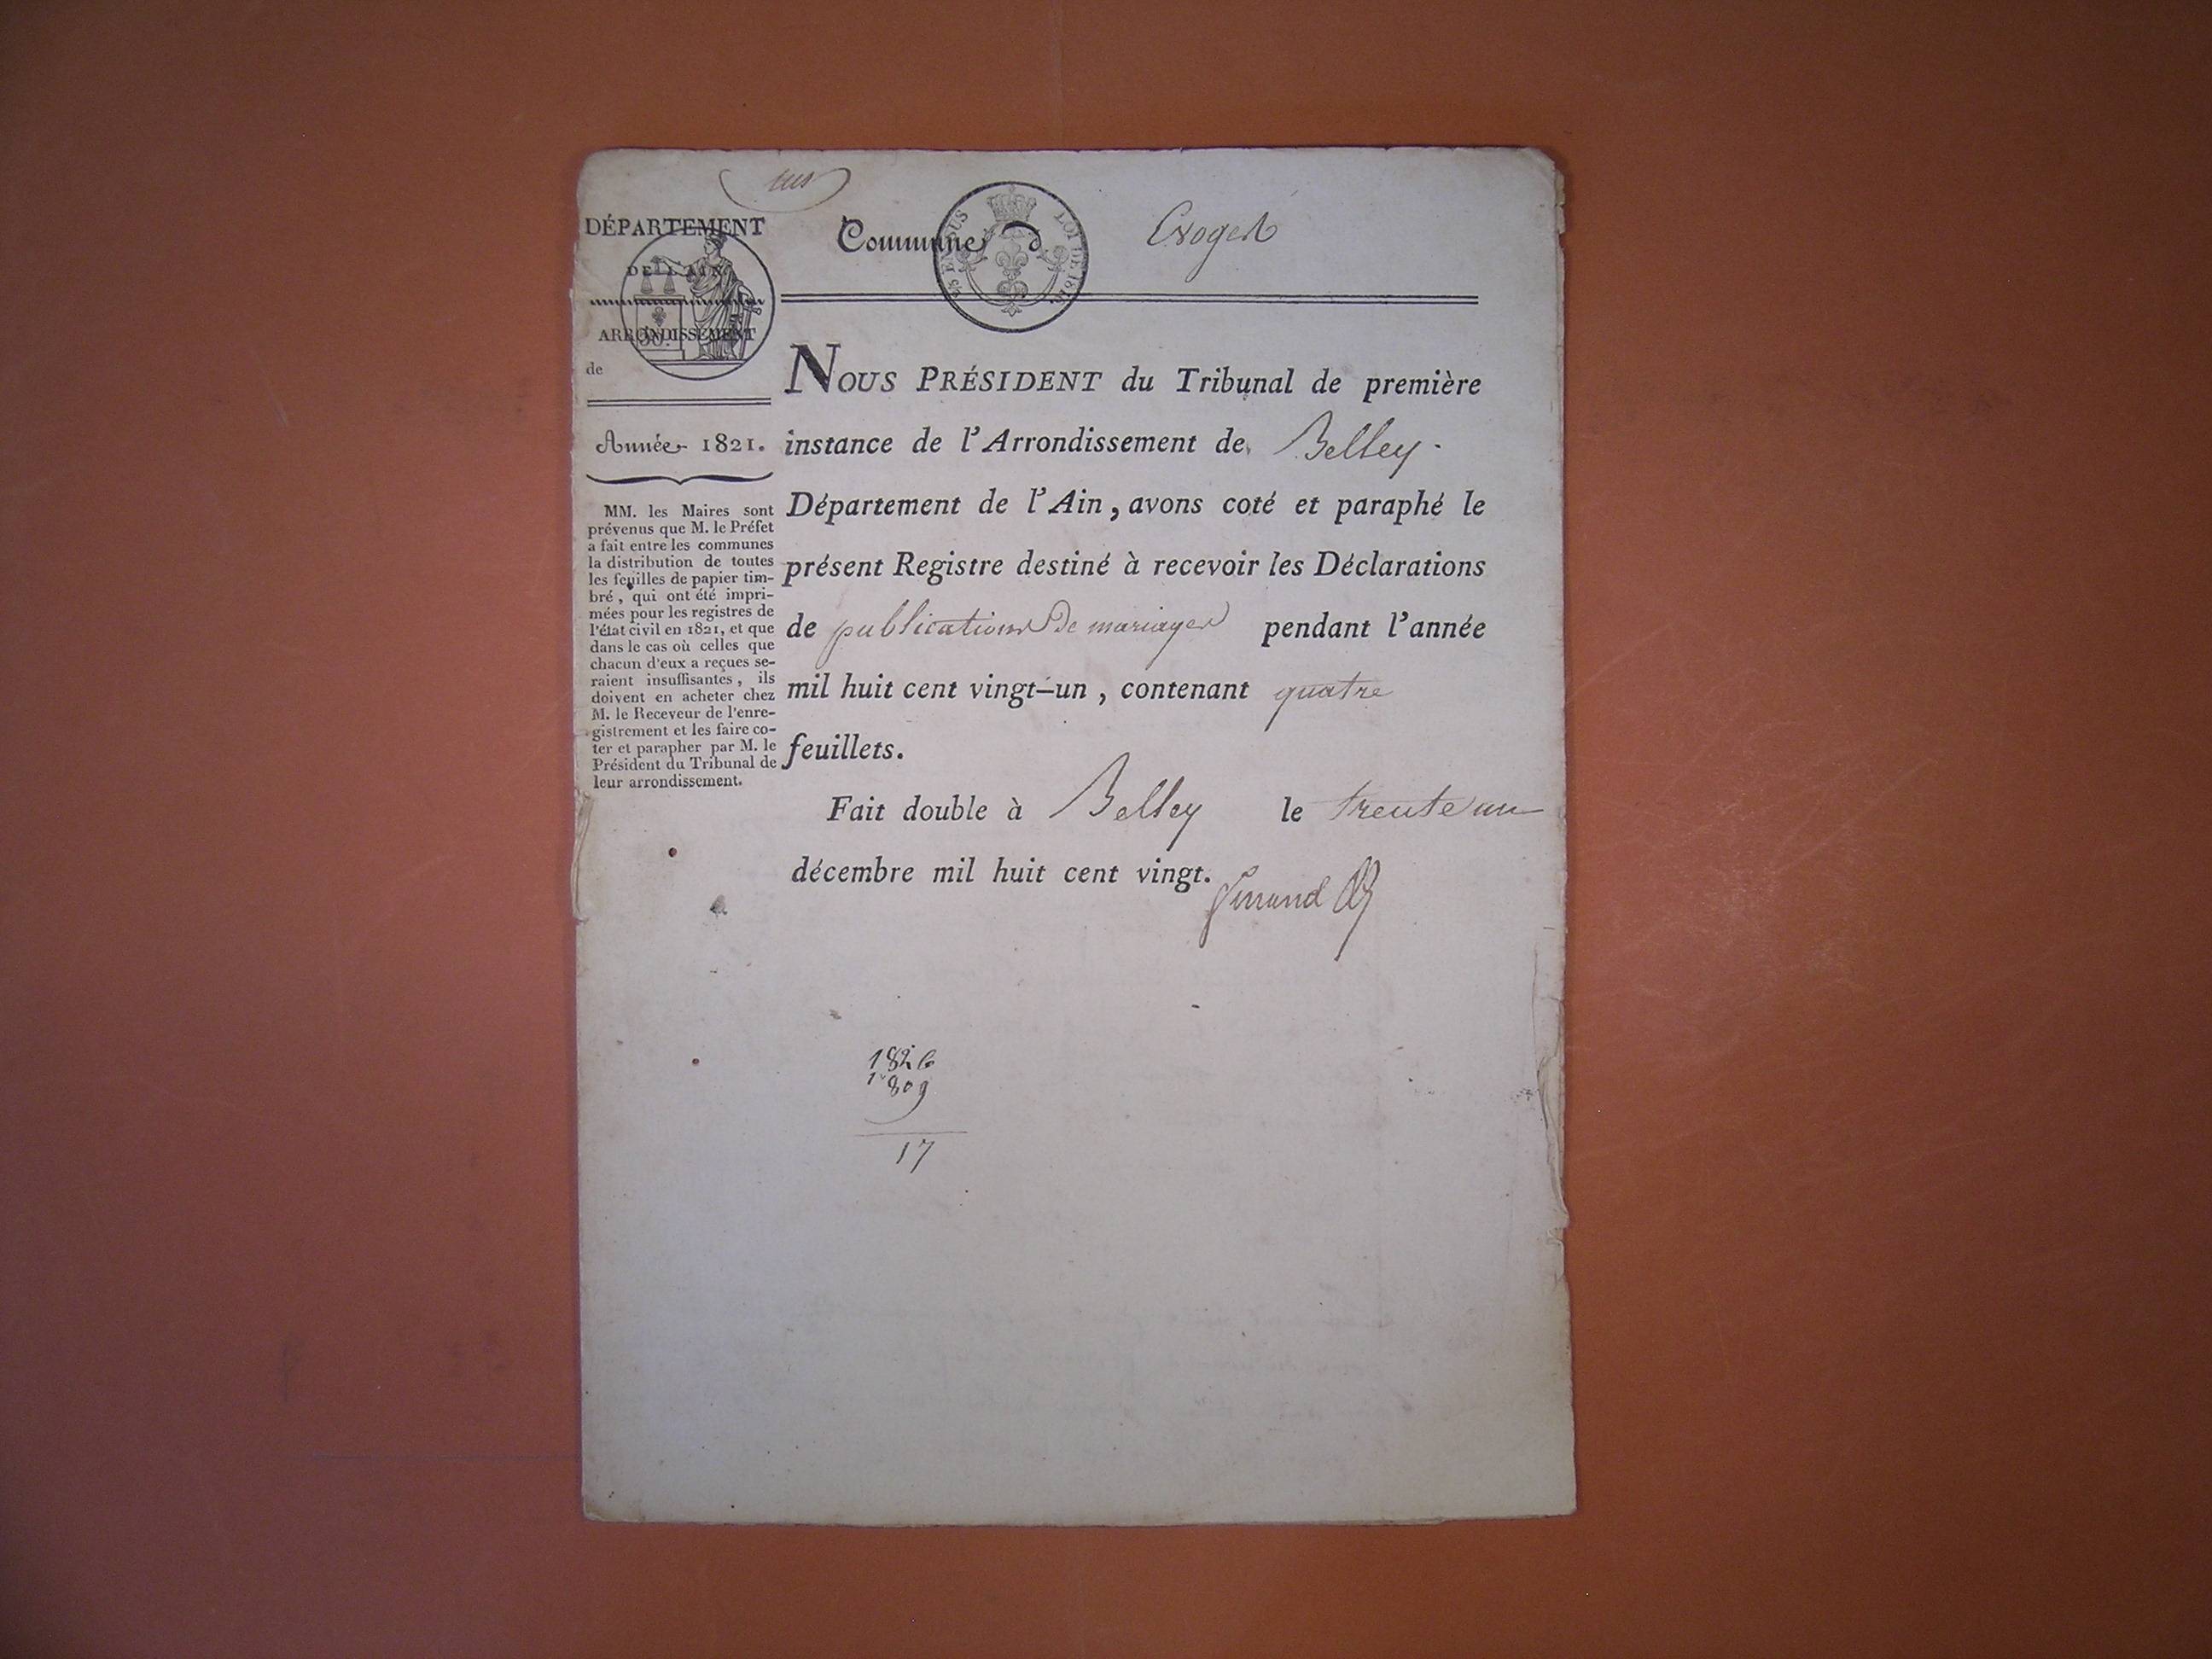 DÉPARTEMENT
DE L'AIN.
ARRONDISSEMENT
de
Année 1821.
MM. les Maires sont
prévenus que M. le Préfet
a fait entre les communes
la distribution de toutes
les feuilles de papier tim-
bré, qui ont été impri-
mées pour les registres de
l'état civil en 1821, et que
dans le cas où celles que
chacun d'eux a reçues se-
raient insuffisantes, ils
doivent en acheter chez
M. le Receveur de l'enre-
gistrement et les faire co-
ter et parapher par M. le
Président du Tribunal de
leur arrondissement.
Commune d
EN SUS LOI DE 1816
NOUS PRÉSIDENT du Tribunal de première
instance de l'Arrondissement de Belley
Département de l'Ain, avons coté et paraphé le
présent Registre destiné à recevoir les Déclarations
de publications de mariages pendant l'année
mil huit cent vingt-un, contenant quatre
feuillets.
Fait double à Belley le trente un
décembre mil huit cent vingt.
1826
1809
17